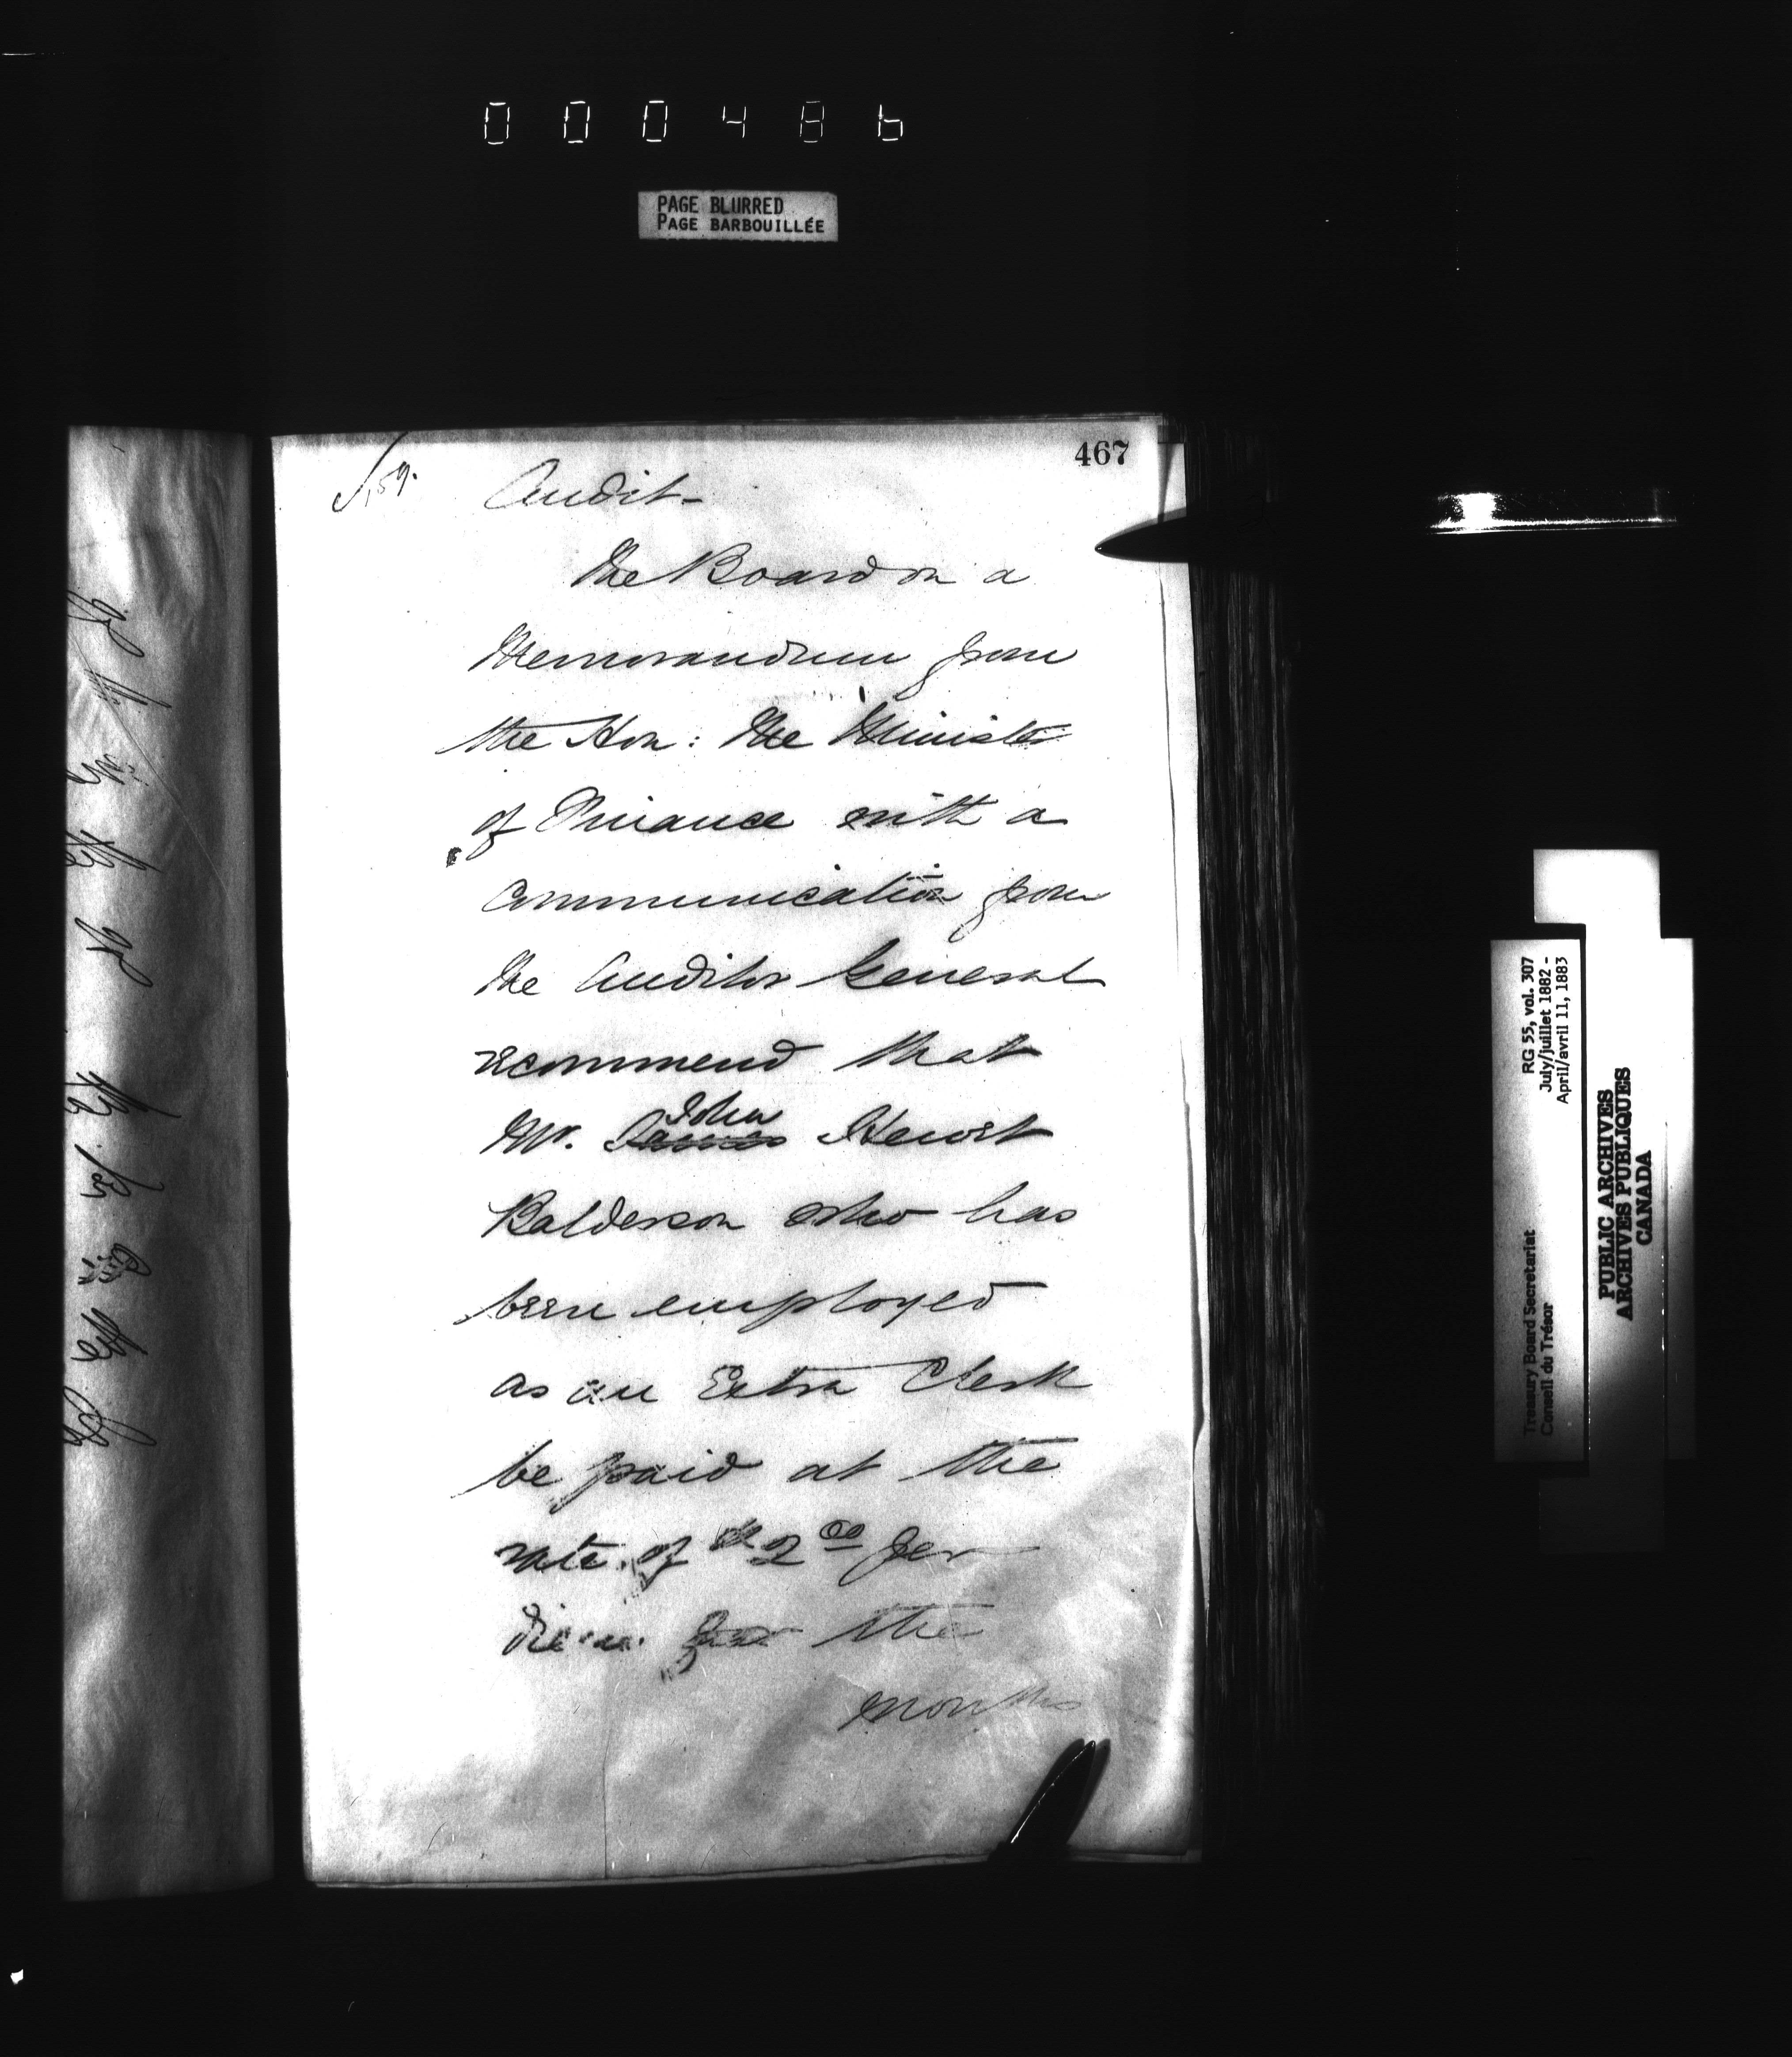 000486
PAGE BLURRED
PAGE BARBOUILLÉE
467
Audit-
The Board on a
Memorandum from
the Hon: the Minister
of Finance with a
Communication from
the Auditor General
recommend that
John
Mr. James Hewit
Balderson who has
been employed
as an Extra Clerk
be paid at the
rate of $2 00 per
diem for the
months
RG 55, vol. 307
July/juillet 1882 -
April/avril 11, 1883
Treasury Board Secretariat
Conseil du Trésor
PUBLIC ARCHIVES
ARCHIVES PUBLIQUES
CANADA